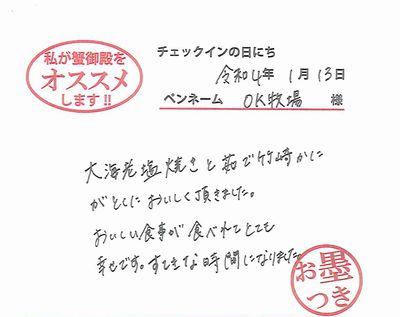 私が蟹御殿を
オススメ
します!!
チェックインの日にち
令和4年 1月 13日
ペンネーム OK牧場 様
大海老塩焼きと茹で竹崎かに
がとくにおいしく頂きました。
おいしい食事が食べれてとても
幸せです。すてきな時間になりました。
お墨
つき